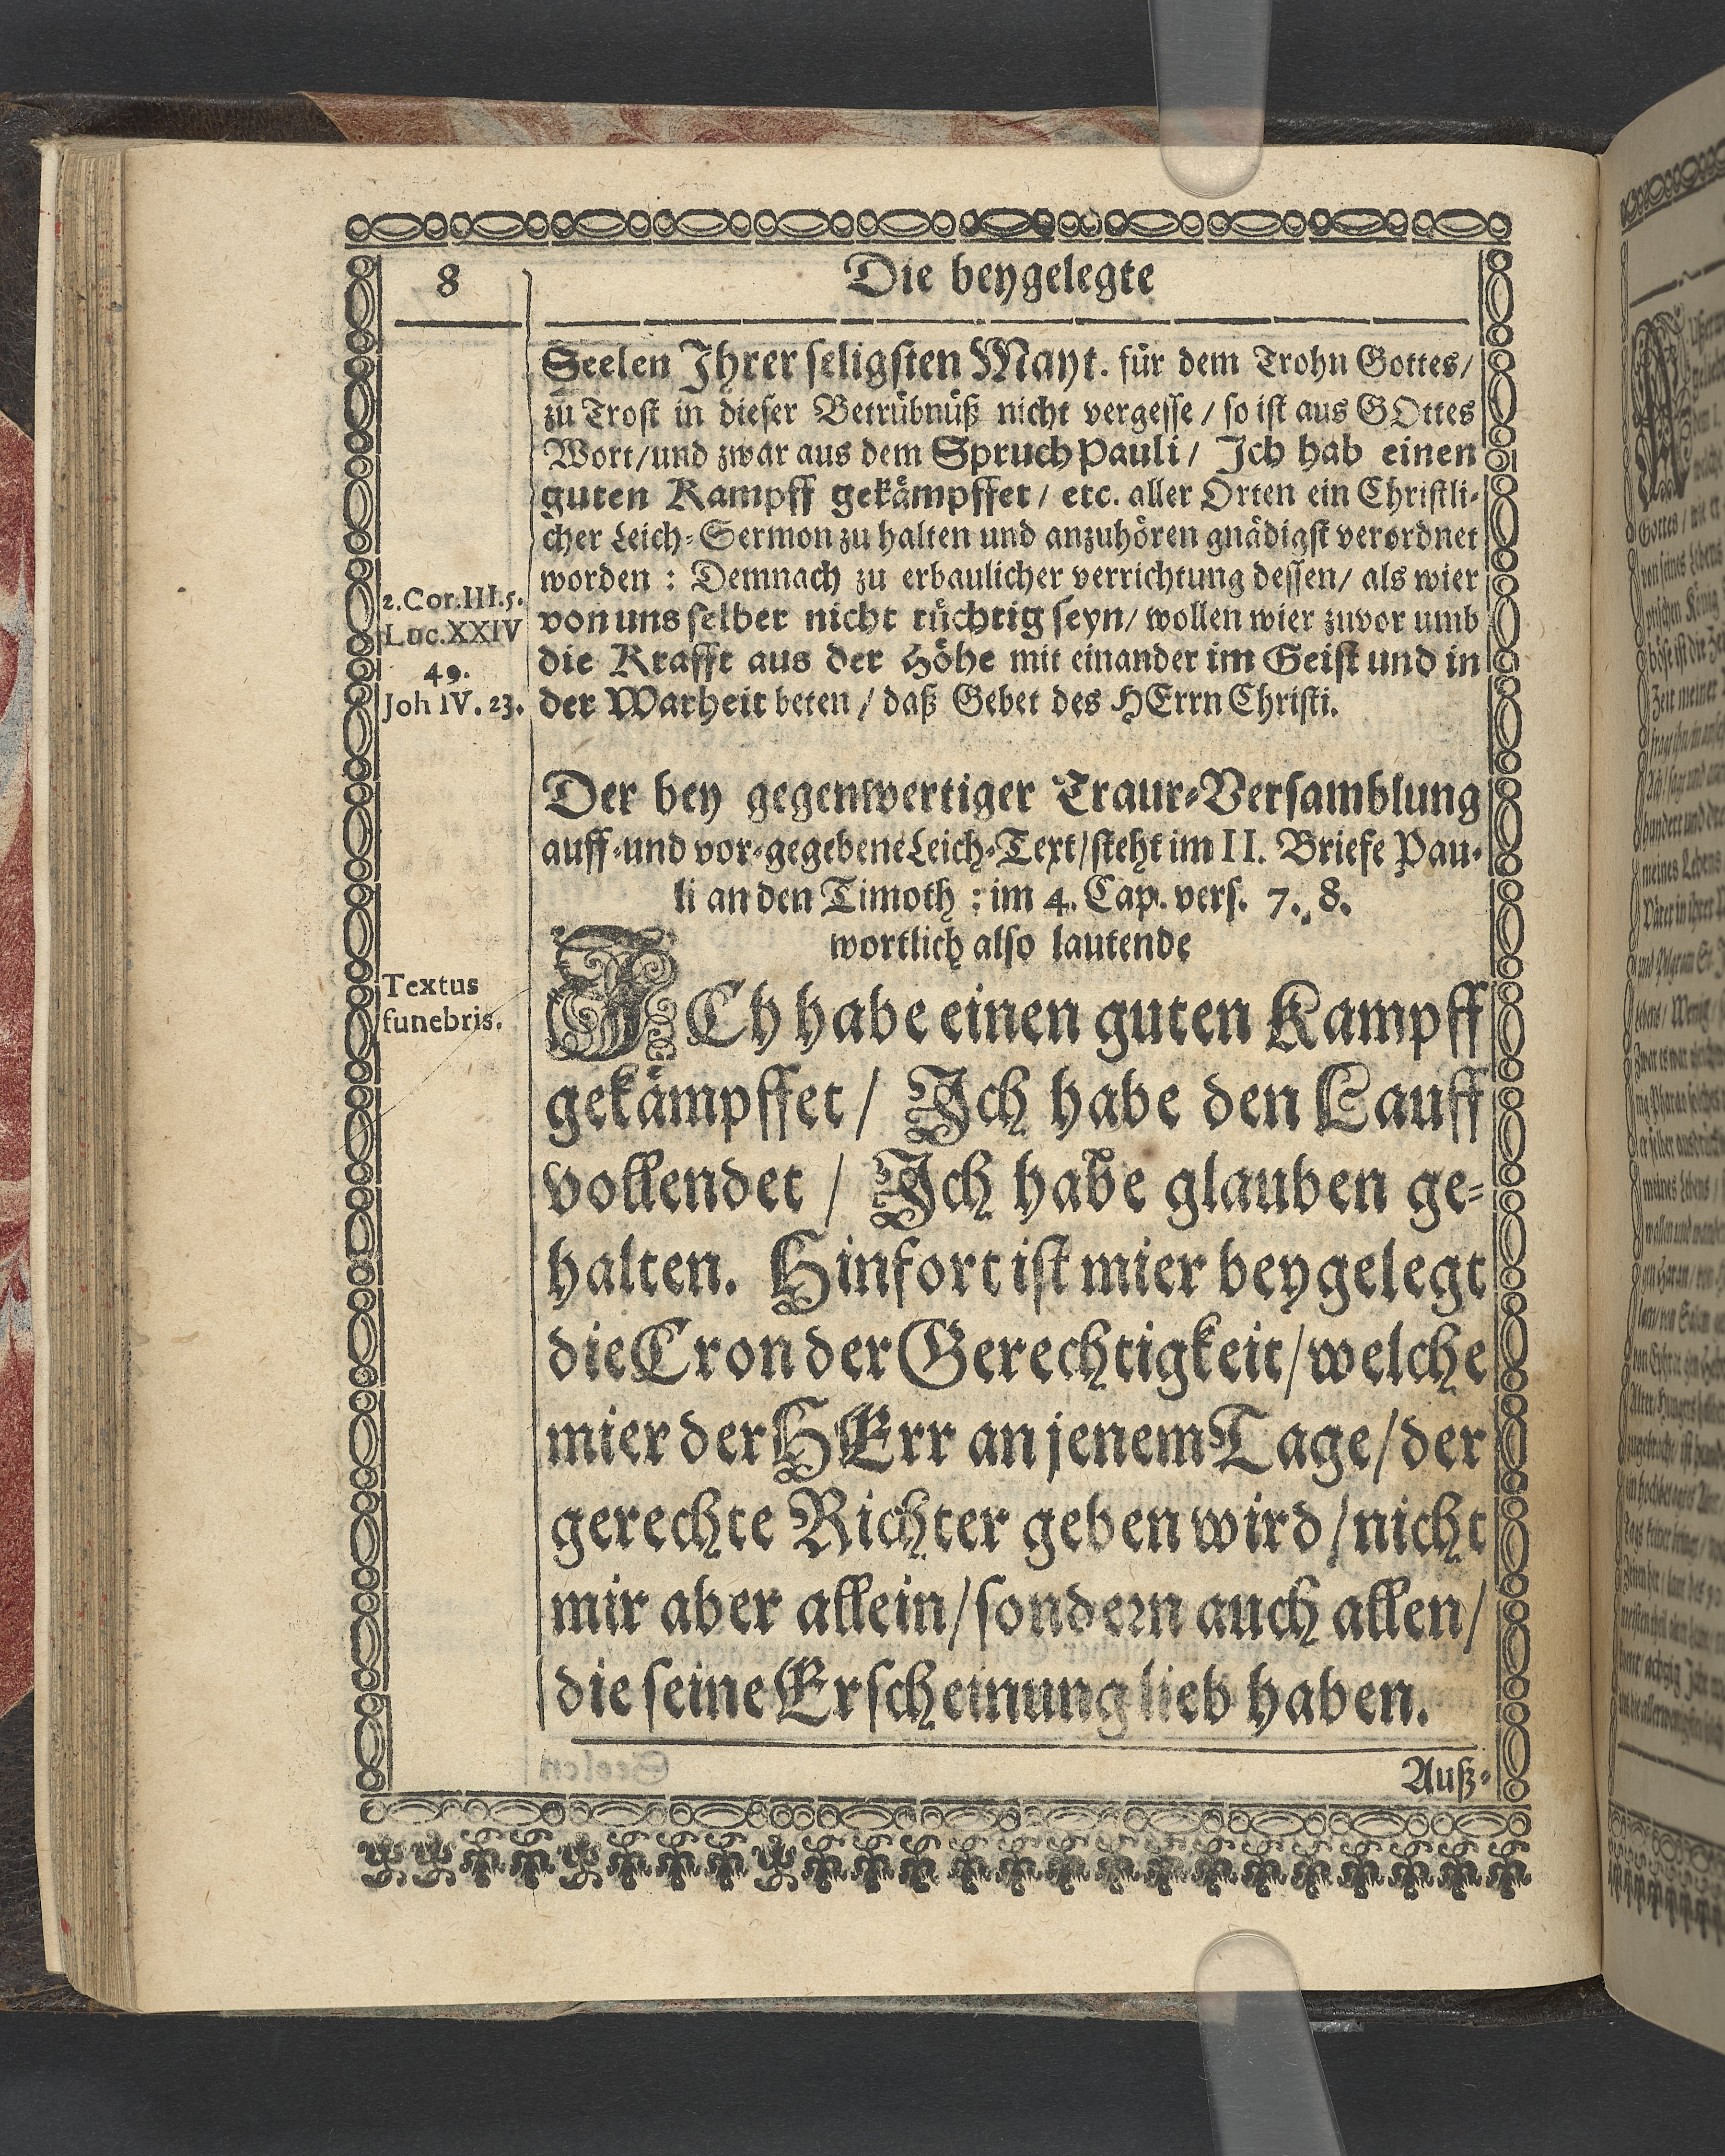 8
Die beygelegte
Seelen Ihrer seligsten Mayt. für dem Trohn Gottes/
zu Trost in dieser Betrübnüß nicht vergesse / so ist aus GOttes
Wort/und zwar aus dem Spruch Pauli/ Ich hab einen
guten Kampff gekämpffet/ etc. aller Orten ein Christli-
cher Leich-Sermon zu halten und anzuhören gnädigst verordnet
worden : Demnach zu erbaulicher verrichtung dessen/ als wier
von uns selber nicht tüchtig seyn/ wollen wier zuvor umb
die Krafft aus der Höhe mit einander im Geist und in
der Warheit beten / daß Gebet des HErrn Christi.
2.Cor.III.5.
Luc.XXIV
49.
Joh IV. 23.
Der bey gegenwertiger Traur-Versamblung
auff-und vor-gegebene Leich-Text/steht im II. Briefe Pau-
li an den Timoth : im 4. Cap. vers. 7. 8.
wortlich also lautende
Textus
funebris.
ICh habe einen guten Kampff
gekämpffet / Ich habe den Lauff
vollendet / Ich habe glauben ge-
halten. Hinfort ist mier beygelegt
die Cron der Gerechtigkeit/welche
mier der HErr an jenem Tage/der
gerechte Richter geben wird/nicht
mir aber allein/sondern auch allen/
die seine Erscheinung lieb haben.
Auß-